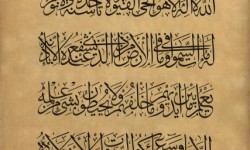 الله لا إله إلا هو الحي القيوم لا تأخذه سنة ولا نوم
له ما في السموات وما في الأرض من ذا الذي يشفع عنده إلا بإذنه
يعلم ما بين أيديهم وما خلفهم ولا يحيطون بشيء من علمه
إلا بما شاء وسع كرسيه السموات والأرض